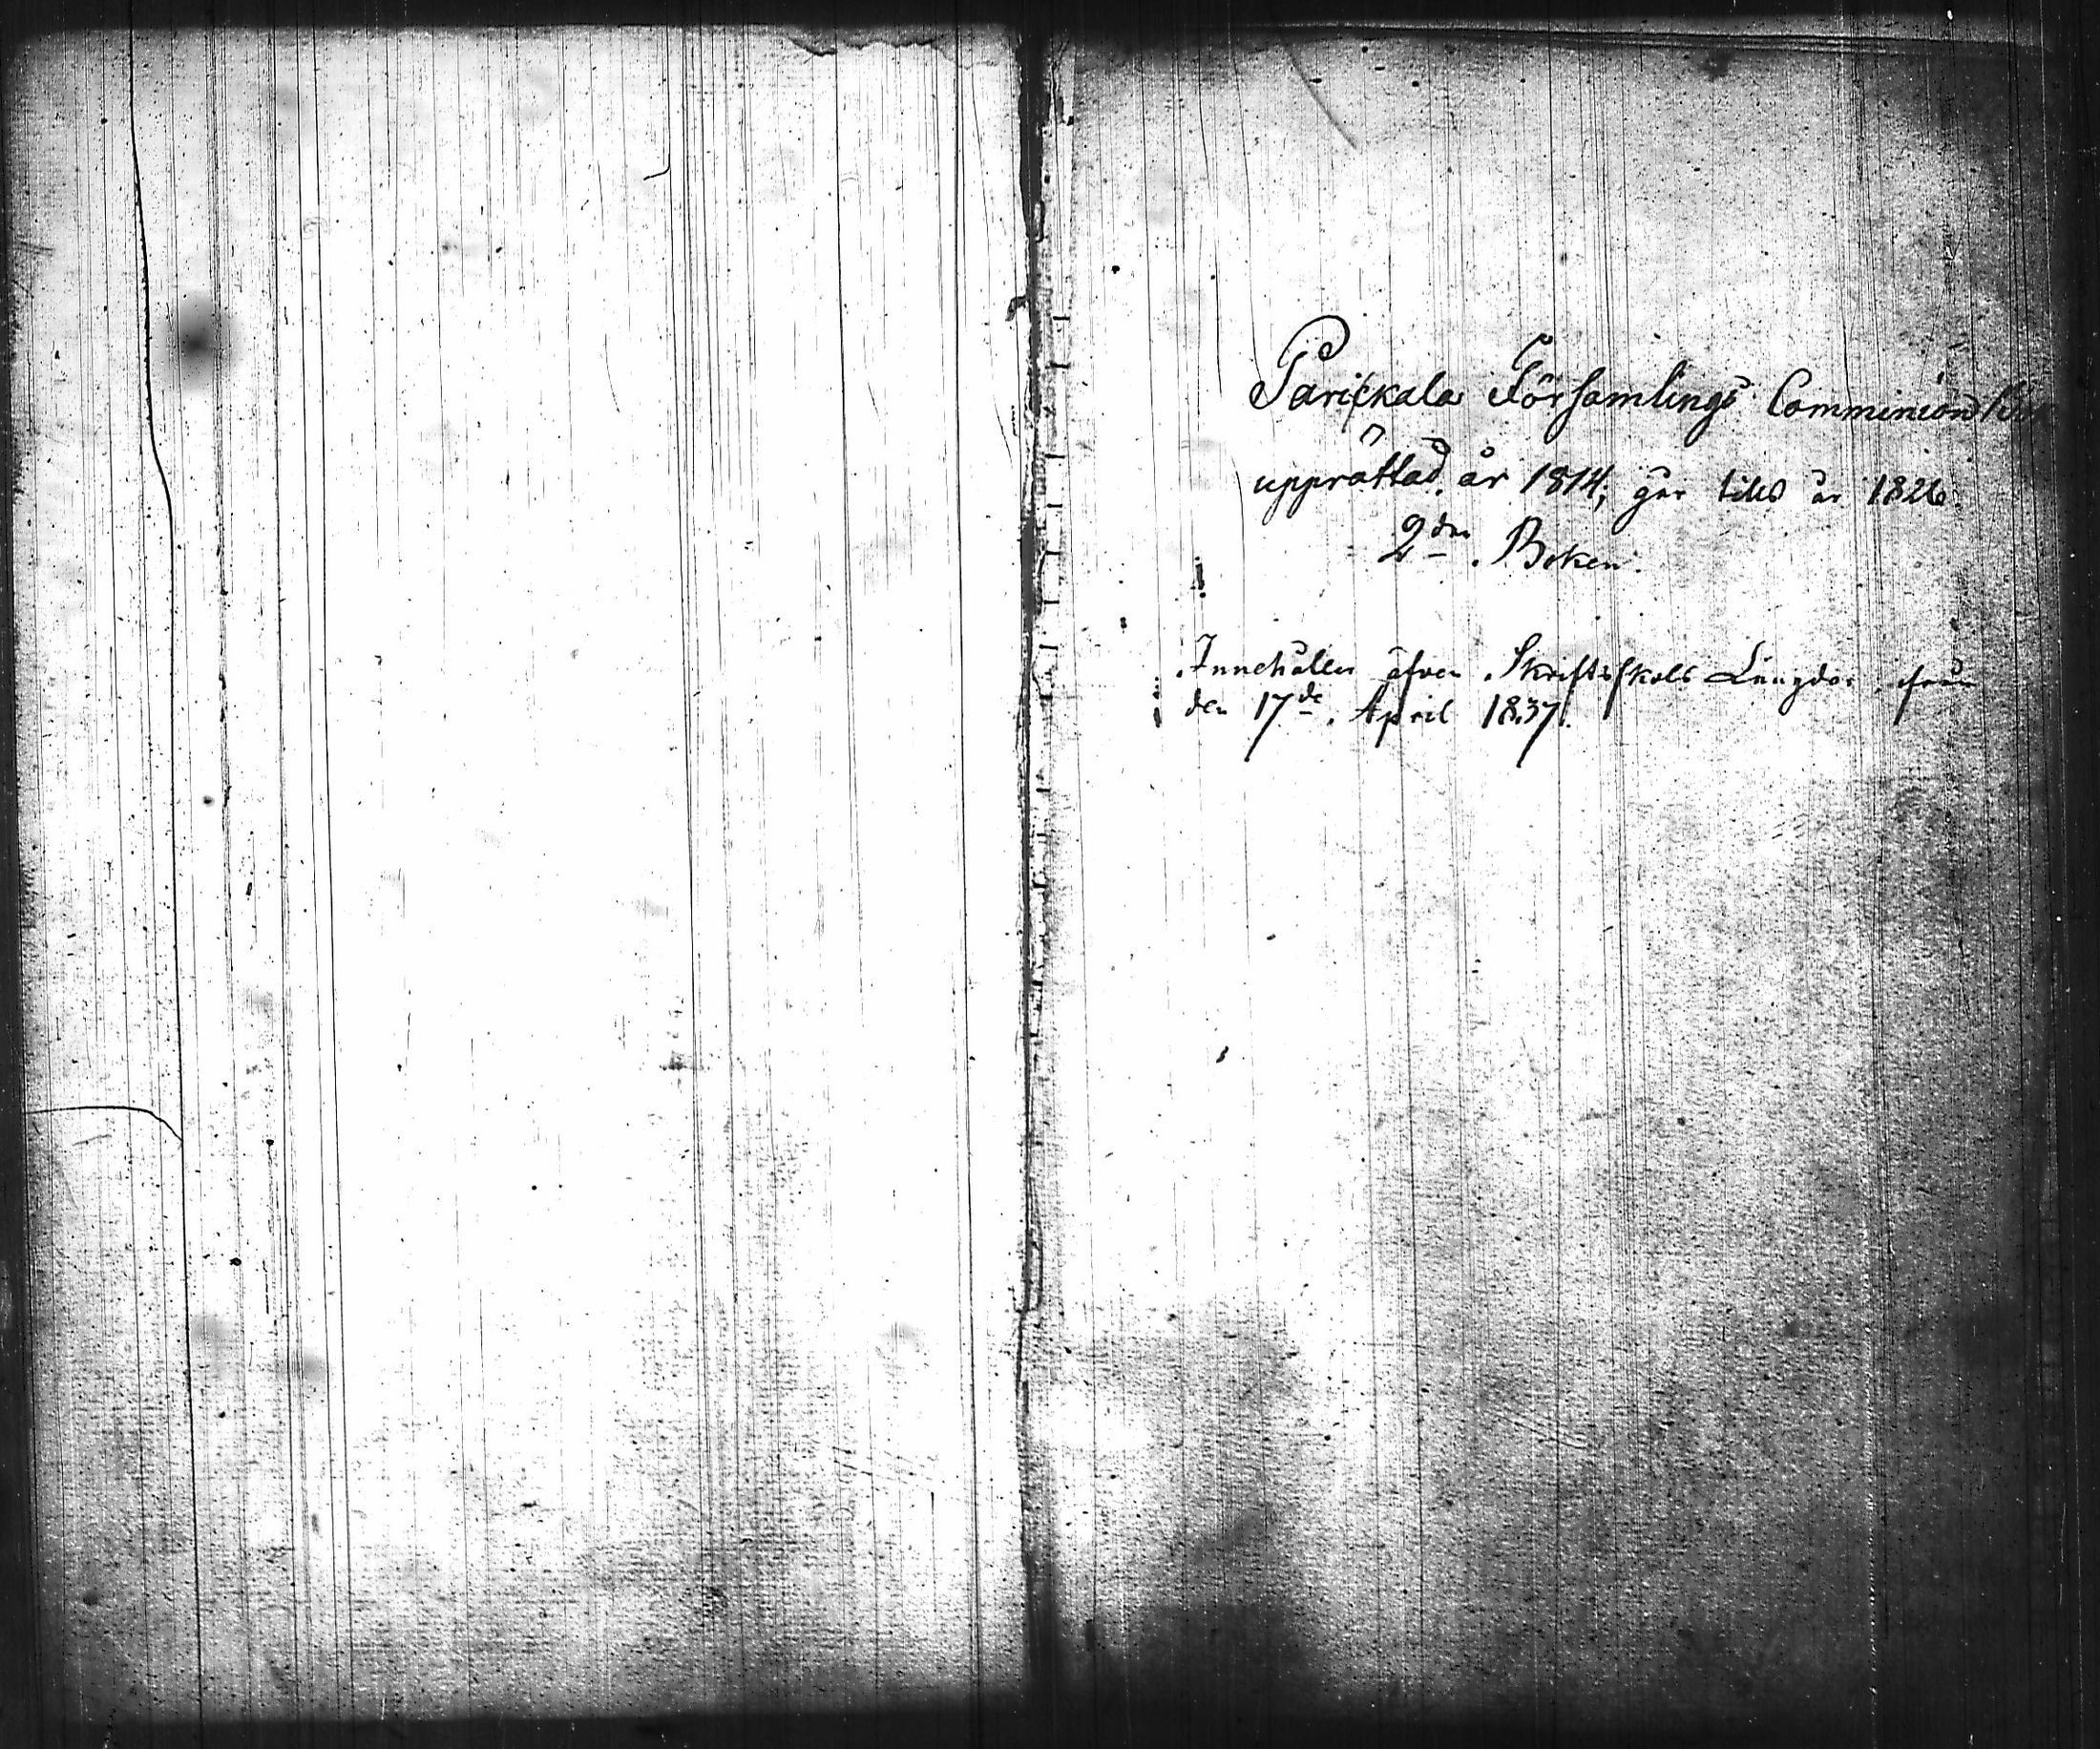 Parickala Församlings Comminion
upprättad år 1814, går tills år 1826.
2dra Boken.
Innehåller äfven Skriftskols Längder från
den 17de April 1837.